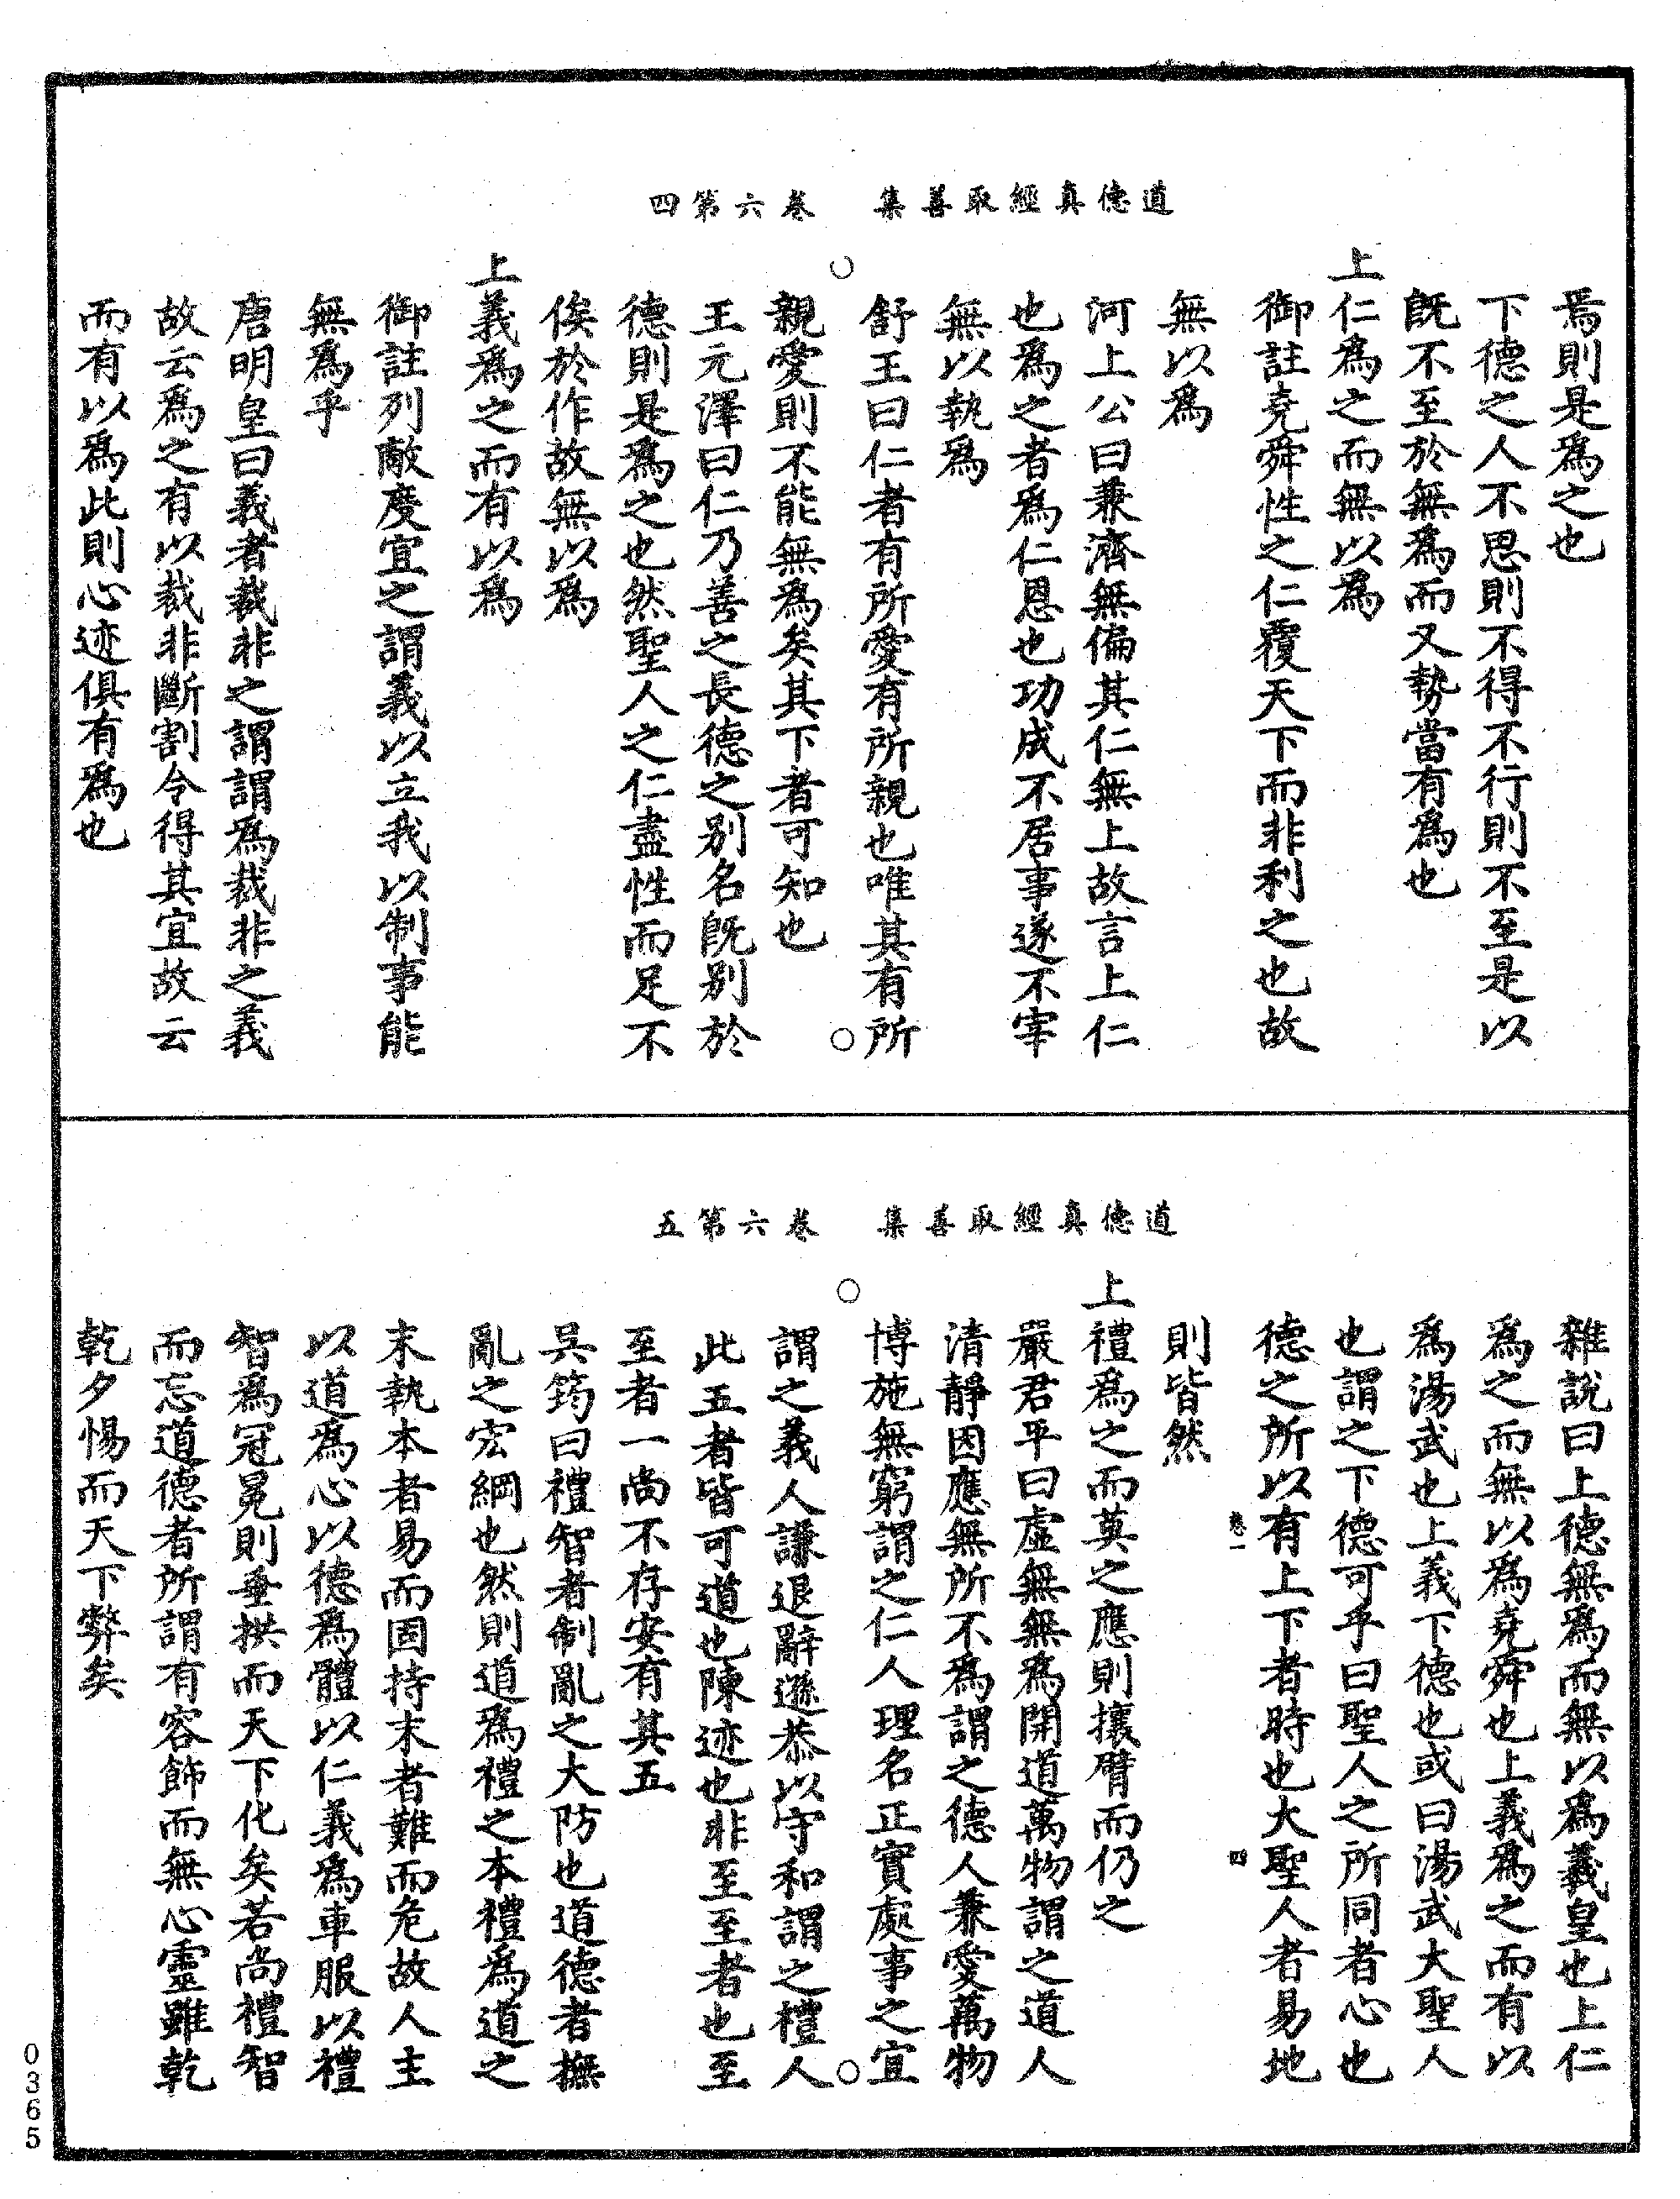 道德真經取善集　卷六第四
焉則是爲之也
下德之人不思則不得不行則不至是以
既不至於無爲而又勢當有爲也
上仁爲之而無以爲
御註堯舜性之仁覆天下而非利之也故
無以爲
河上公曰兼濟無偏其仁無上故言上仁
也爲之者爲仁恩也功成不居事遂不宰
無以執爲
舒王曰仁者有所愛有所親也唯其有所
親愛則不能無爲矣其下者可知也
王元澤曰仁乃善之長德之别名既别於
德則是爲之也然聖人之仁盡性而足不
俟於作故無以爲
上義爲之而有以爲
御註列敵度宜之謂義以立我以制事能
無爲乎
唐明皇曰義者裁非之謂謂爲裁非之義
故云爲之有以裁非斷割令得其宜故云
而有以爲此則心迹俱有爲也
道德真經取善集　卷六第五
雜說曰上德無爲而無以爲羲皇也上仁
爲之而無以爲堯舜也上義爲之而有以
爲湯武也上義下德也或曰湯武大聖人
也謂之下德可乎曰聖人之所同者心也
德之所以有上下者時也大聖人者易地
則皆然
上禮爲之而莫之應則攘臂而仍之
嚴君平曰虛無無爲開道萬物謂之道人
清靜因應無所不爲謂之德人兼愛萬物
博施無窮謂之仁人理名正實處事之宜
謂之義人謙退辭遜恭以守和謂之禮人
此五者皆可道也陳迹也非至至者也至
至者一尚不存安有其五
吳筠曰禮智者制亂之大防也道德者撫
亂之宏綱也然則道爲禮之本禮爲道之
末執本者易而固持末者難而危故人主
以道爲心以德爲體以仁義爲車服以禮
智爲冠冕則垂拱而天下化矣若尚禮智
而忘道德者所謂有容飾而無心靈雖乾
乾夕惕而天下弊矣
0365